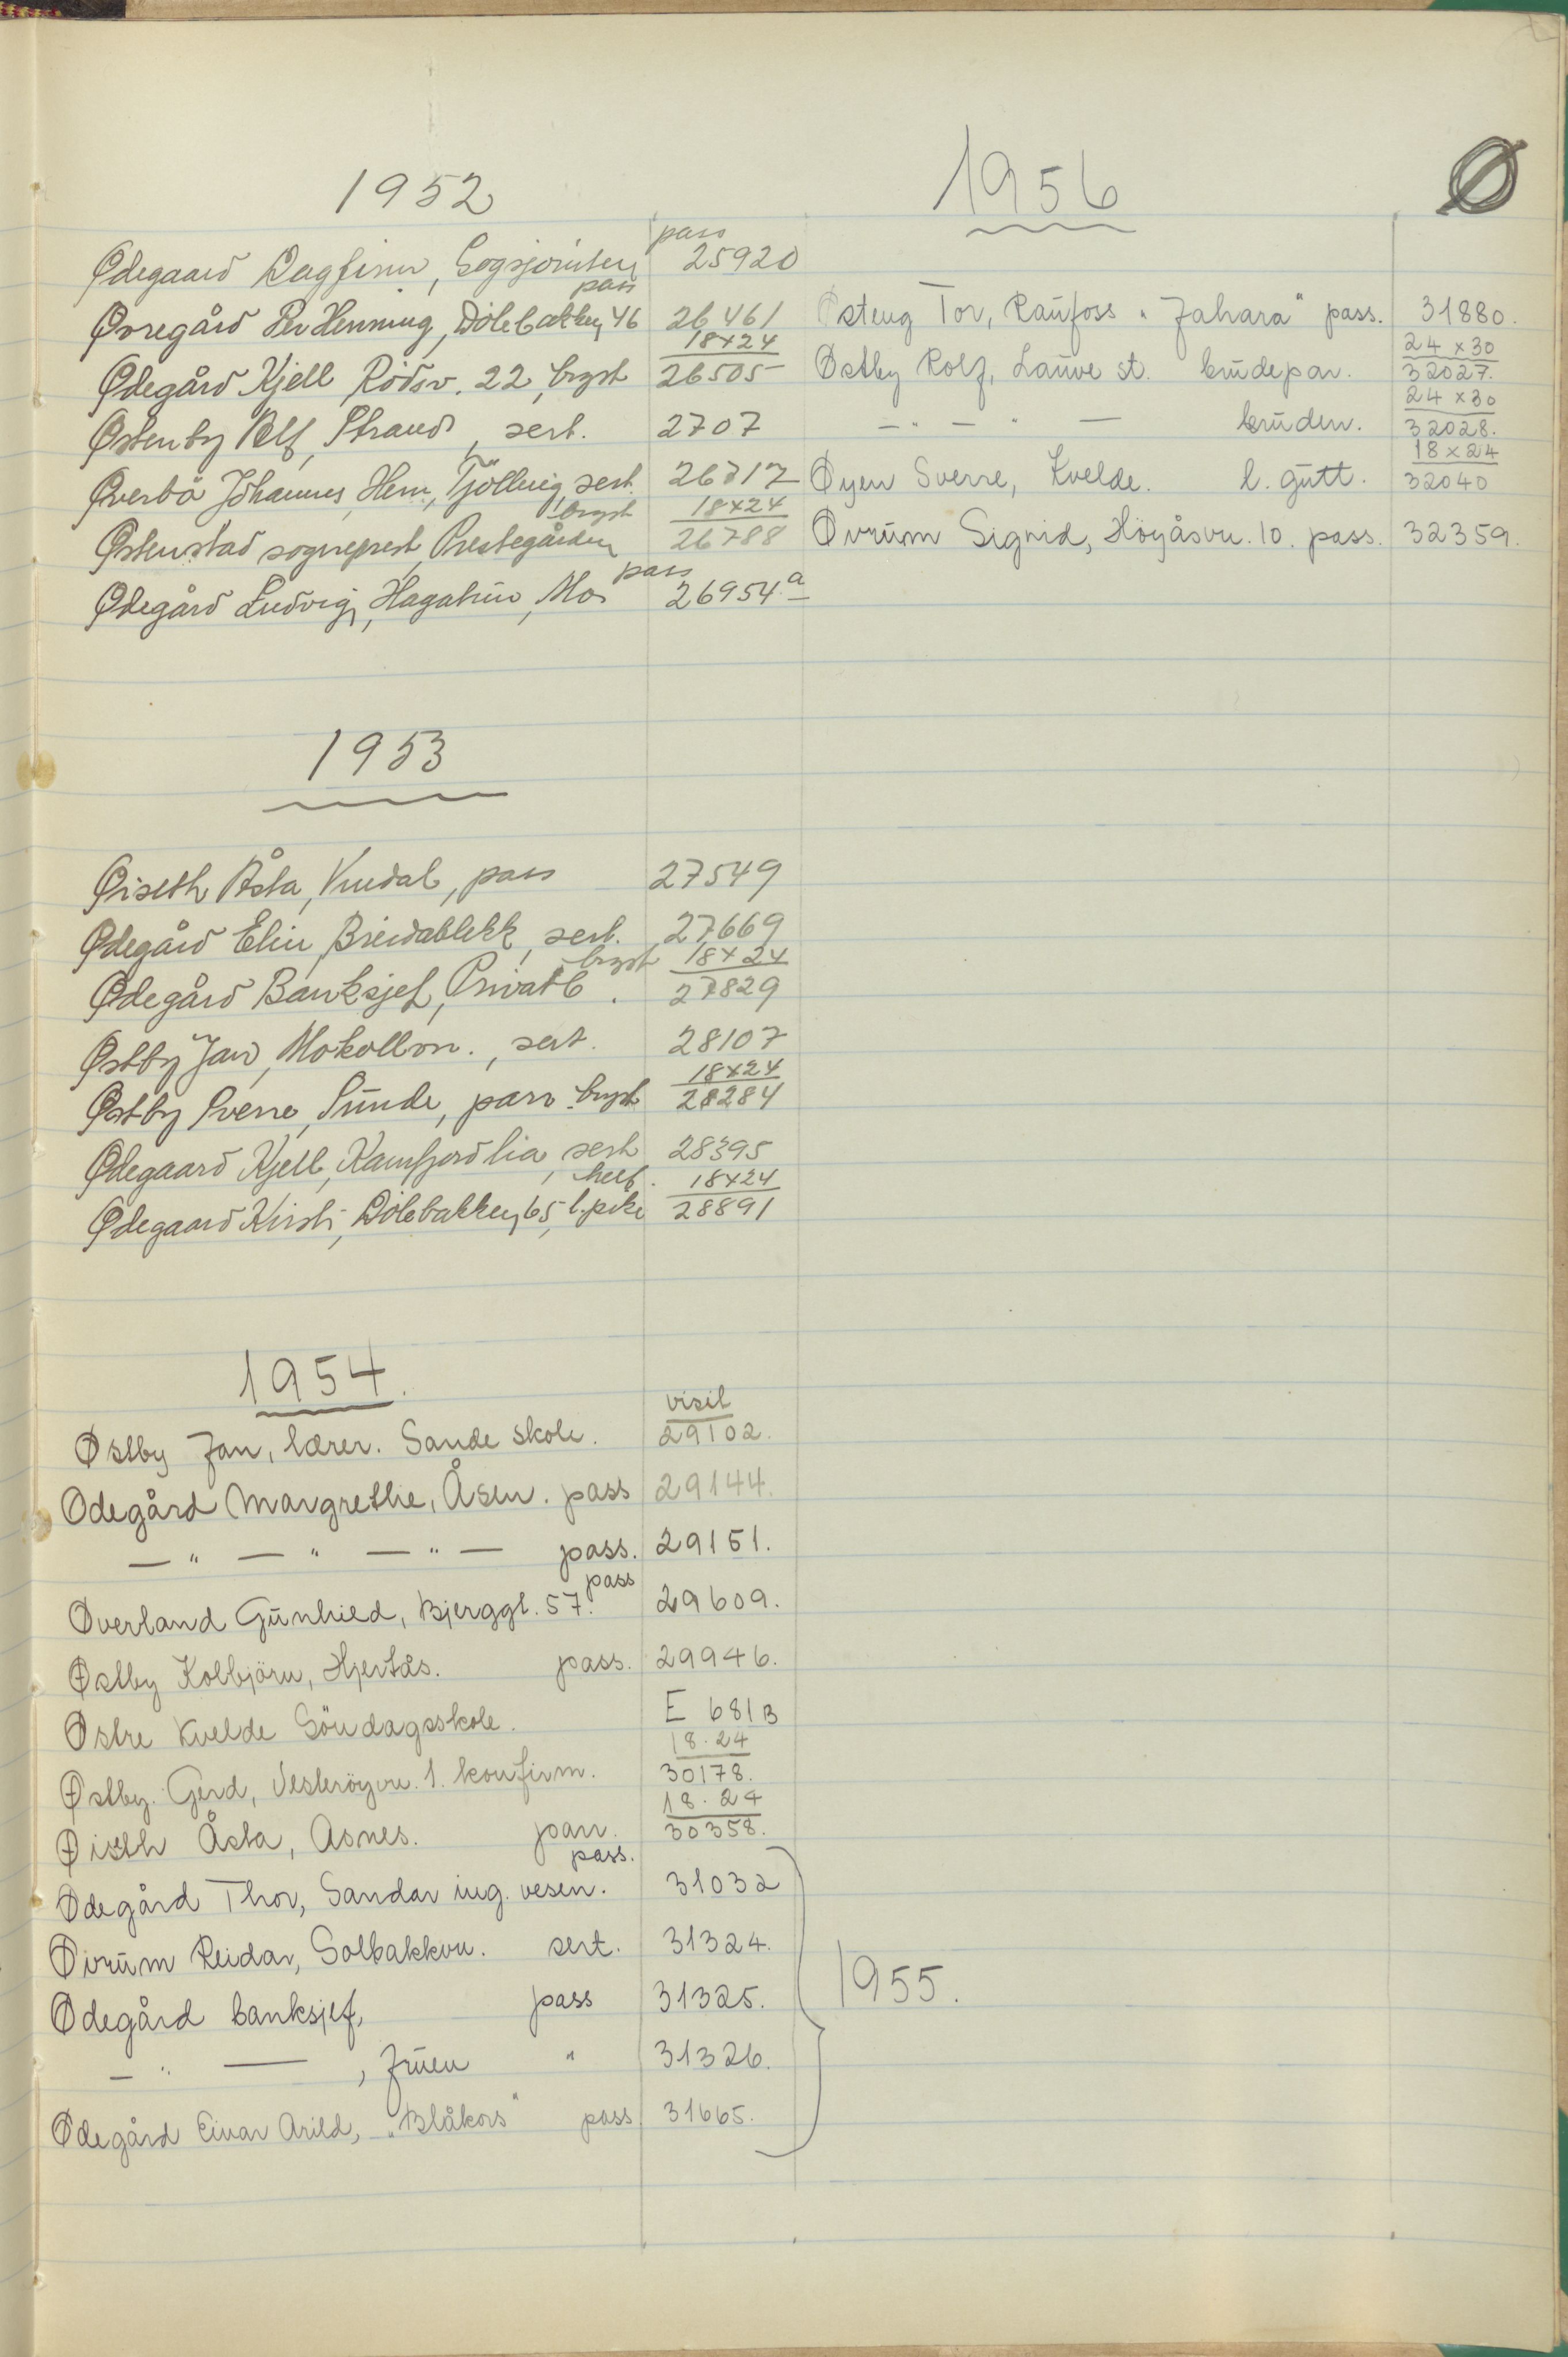 Ø
1952
Ødegaard Dagfinn, pass 25920
Øvregård Per Henning, Dölebakken 46 pass 26461
Ødegård Kjell Rödsv. 22, bryst 18x24 26505
Østenby Rolf, Strand, sert. 2707
Øverbö Johannes, Hem, Tjölling, sert. 26717
Østenstad sogneprest, Prestegården bryst 18x24 26788
Ødegård Ludvig, Hagatun, Mo pass 26954a
1953
Øiseth Åsta, Kvedal, pass 27549
Ødegård Elin, Breidablikk, sert. 27669
Ødegård Banksjef, Privatb. bryst 18x24 27829
Østby Jan, Mokollvn., sert. 28107
Østby Sverre, Sünde, par bryst 18x24 28284
Ødegaard Kjell, Kamfjordlia, sert 28395
Ødegaard Kirsti, Dölebakken 65, l. pike helf. 18x24 28891
1954.
Østby Jan, lærer. Sande skole. visit 29102.
Ødegård Margrethe, Åsen. pass 29144.
— " — " — " — pass. 29151.
Øverland Günhild, Bjerggt. 57. pass 29609.
Østby Kolbjörn, Hjertås. pass. 29946.
Østre Kvelde Söndagsskole. E 681B
Østby. Gerd, Vesteröyvn. 1. konfirm. 18.24 30178.
Øisth Åsta, Asnes. parr. 18.24 30358.
Ødegård Thor, Sandar ing. vesen. pass. 31032
Øvrüm Reidar, Solbakkvn. sert. 31324.
Ødegård banksjef, pass 31325.
— " — , früen " 31326.
Ødegård Einar Arild, "Blåkors" pass 31665.
1955.
1956
Østeng Tor, Raüfoss "Jahara" pass. 31880.
Østby Rolf, Laüve st. brüdepar. 24x30 32027.
— " — " — brüden. 24x30 32028.
Øyen Sverre, Kvelde. l. gütt. 18x24 32040
Øvrüm Sigrid, Höyåsvn. 10. pass. 32359.